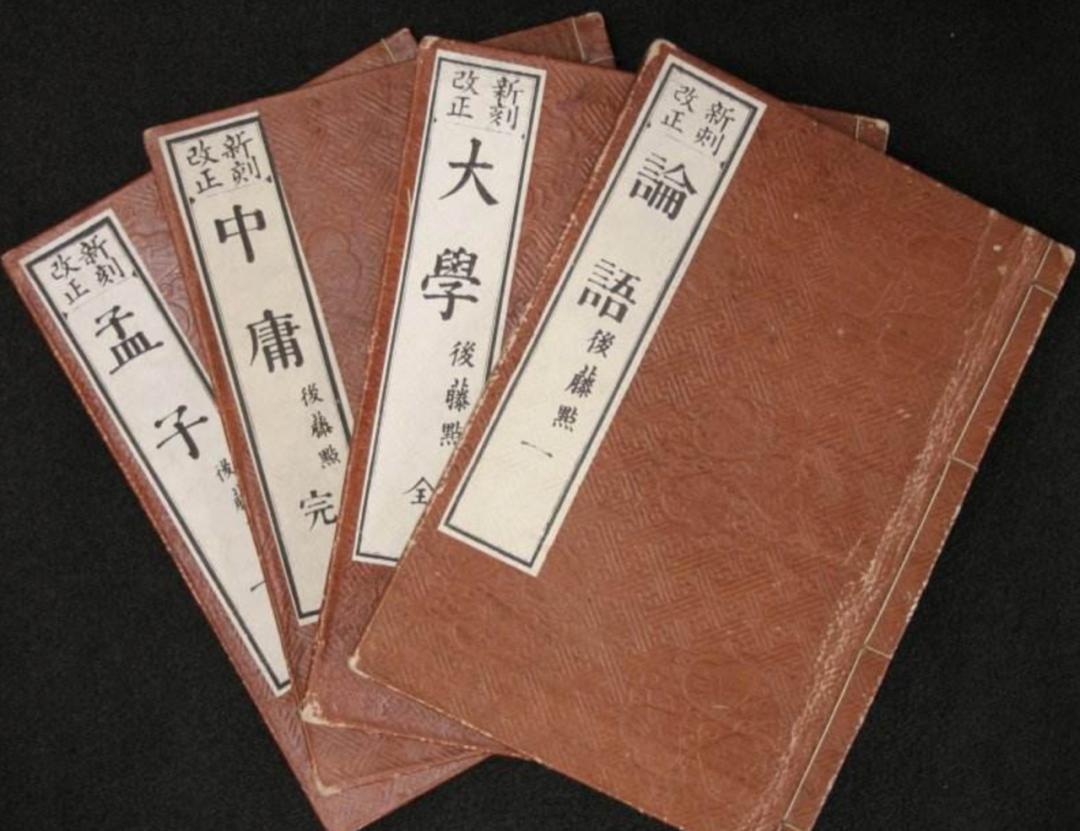 新刻
改正
論語
後藤點
一
新刻
改正
大學
後藤點
全
新刻
改正
中庸
後藤點
完
新刻
改正
孟子
後藤
一